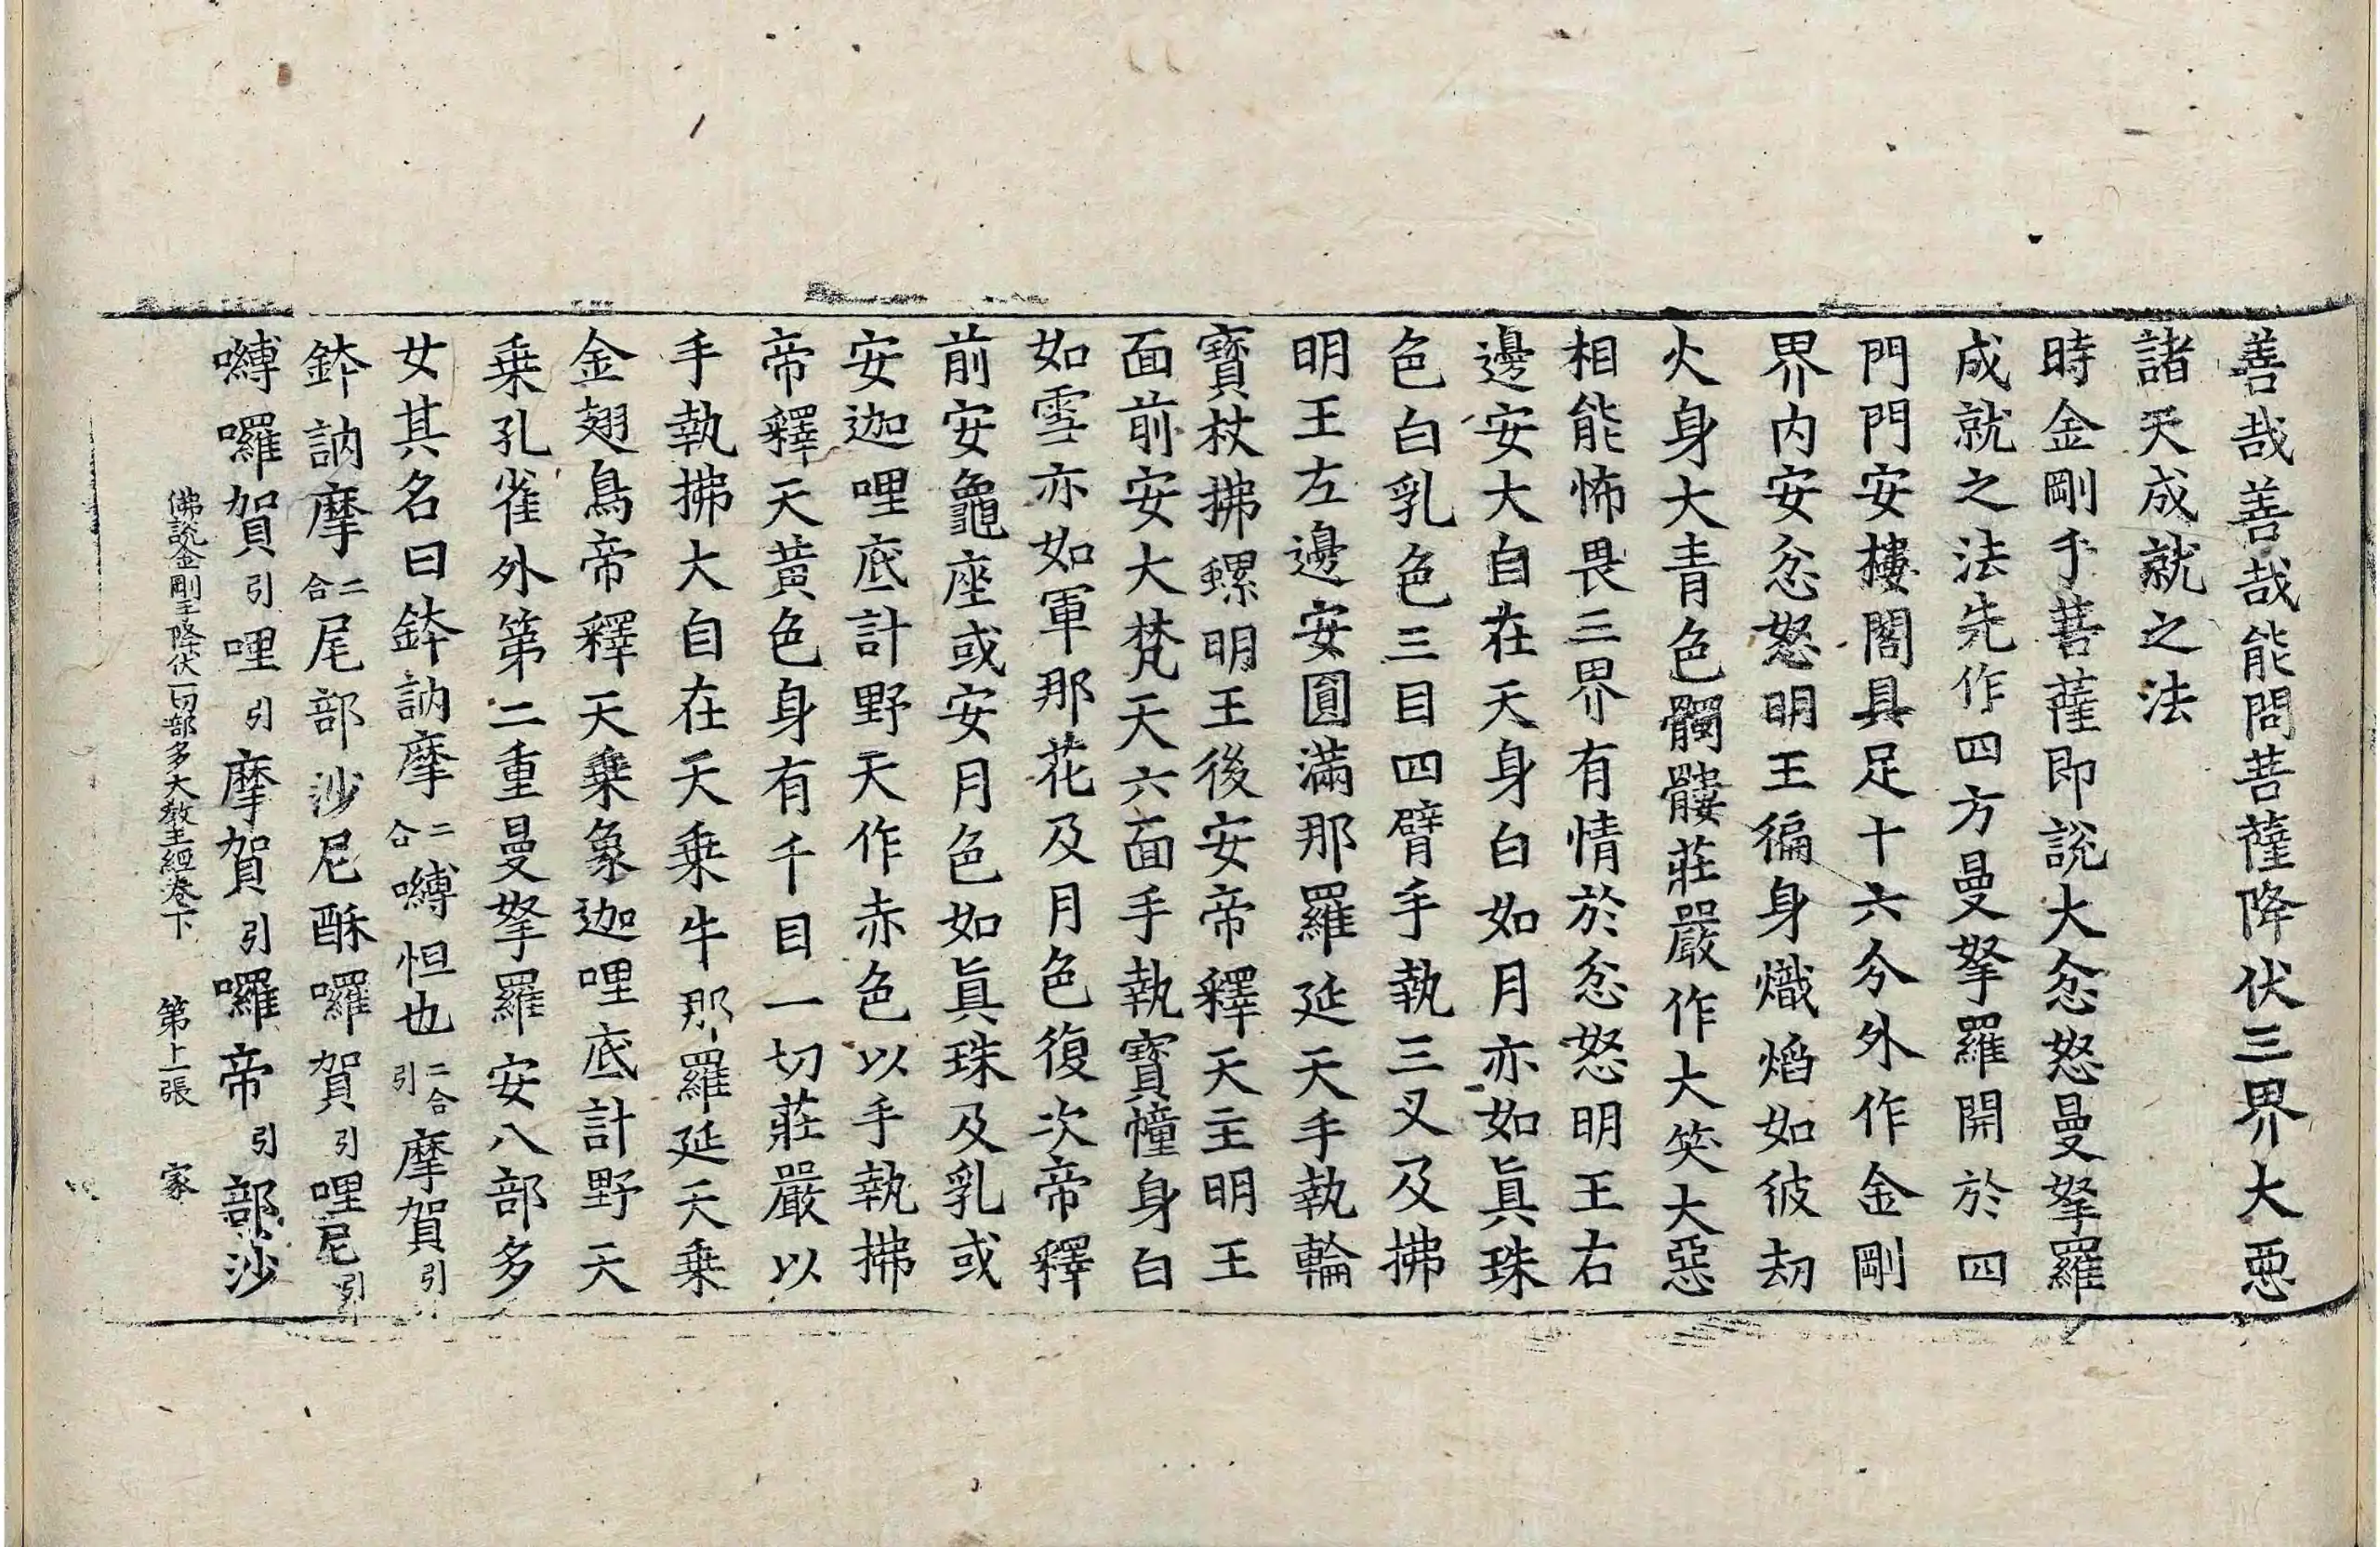 善哉善哉能問菩薩降伏三界大惡
諸天成就之法
時金剛手菩薩即說大忿怒曼拏羅
成就之法先作四方曼拏羅開於四
門門安樓閣具足十六分外作金剛
界內安忿怒明王徧身熾焰如彼劫
火身大青色髑髏莊嚴作大笑大惡
相能怖畏三界有情於忿怒明王右
邊安大自在天身白如月亦如眞珠
色白乳色三目四臂手執三叉及拂
明王左邊安圓滿那羅延天手執輪
寶杖拂螺明王後安帝釋天主明王
面前安大梵天六面手執寶幢身白
如雪亦如軍那花及月色復次帝釋
前安龜座或安月色如眞珠及乳或
安迦哩底計野天作赤色以手執拂
帝釋天黃色身有千目一切莊嚴以
手執拂大自在天乘牛那羅延天乘
金翅鳥帝釋天乘象迦哩底計野天
乘孔雀外第二重曼拏羅安八部多
女其名曰鉢訥摩二合嚩怛也二合引摩賀引
鉢訥摩二合尾部沙尼酥囉賀引哩尼引
嚩囉賀引哩引摩賀引囉帝引部沙
佛說金剛手降伏一切部多大教王經卷下 第上張 家